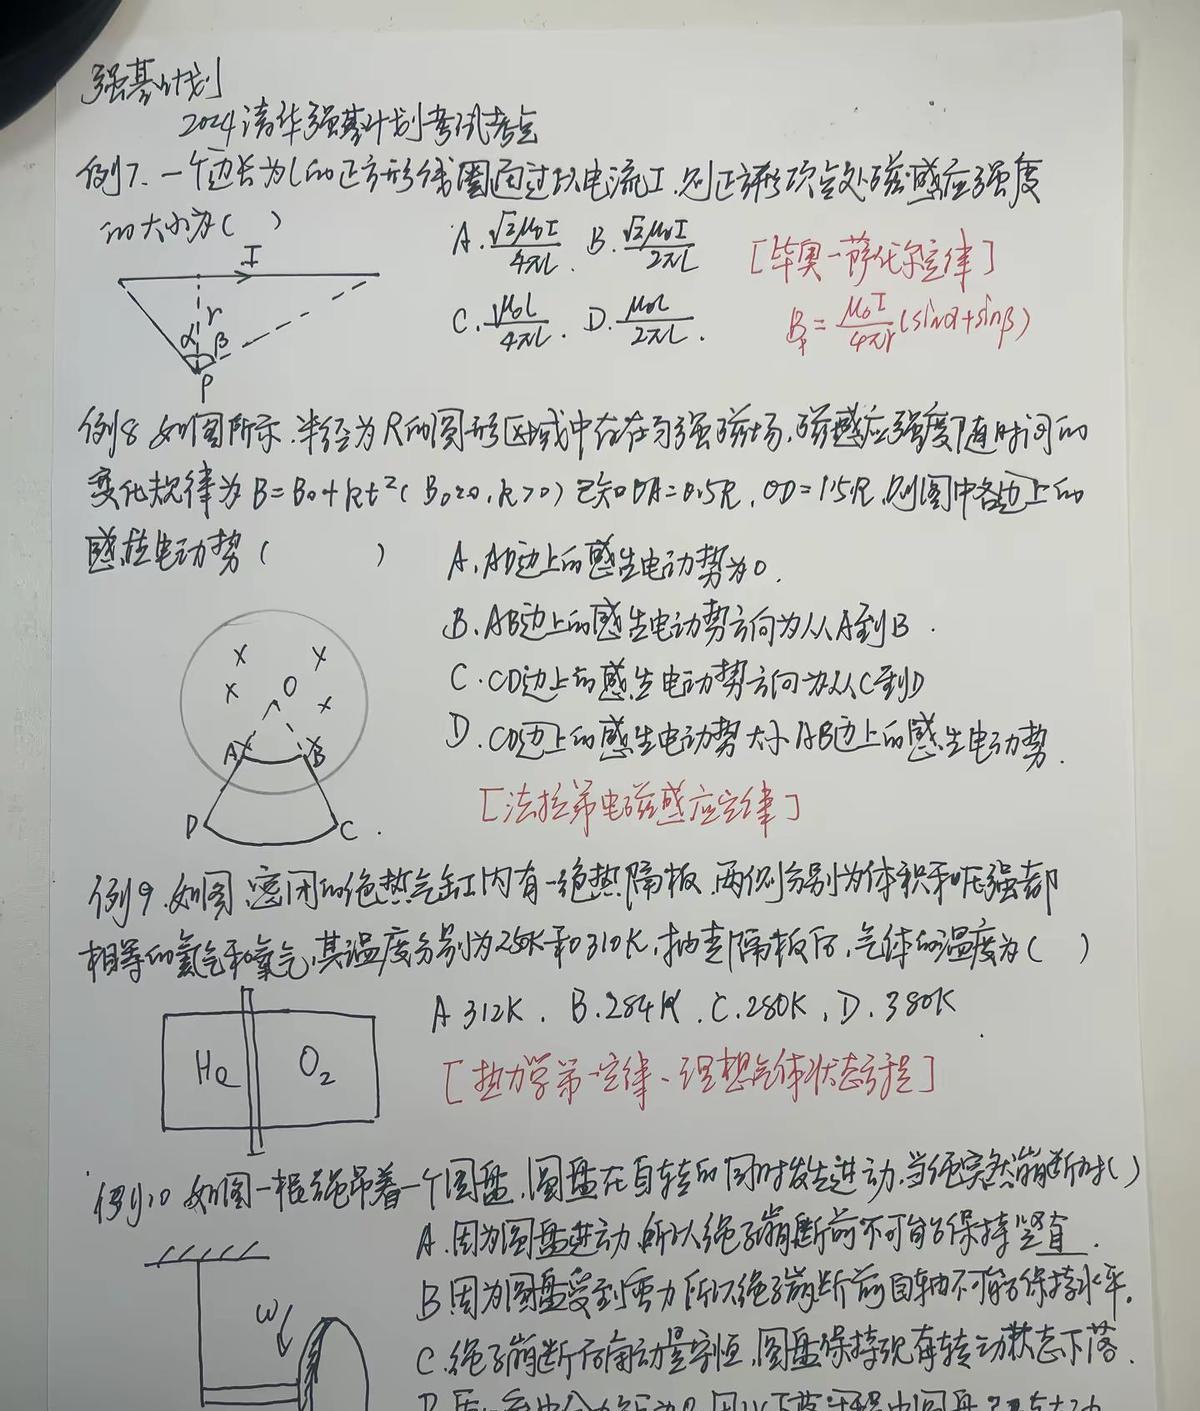 强基计划
2024清华强基计划考试考点
例7. 一个边长为l的正方形线圈通过以电流I, 则正方形顶点处磁感应强度
的大小为( )
A. √2μ₀I/4πL . B. √2μ₀I/2πL
[毕奥-萨伐尔定律]
C. μ₀L/4πL . D. μ₀L/2πL .
B = μ₀I/4πr (sinα+sinβ)
I
r
α β
P
例8 如图所示. 半径为R的圆形区域中存在匀强磁场, 磁感应强度随时间的
变化规律为B=B₀+kt²( B₀≥0, k>0) 已知OA=0.5R, OD=1.5R, 则图中各边上的
感生电动势( )
A. AD边上的感生电动势为0.
B. AB边上的感生电动势方向为从A到B .
C. CD边上的感生电动势方向为从C到D
D. CD边上的感生电动势大于AB边上的感生电动势.
[法拉第电磁感应定律]
x x
x O x
A B
D C .
例9. 如图, 密闭的绝热气缸内有一绝热隔板, 两侧分别为体积和压强都
相等的氦气和氧气, 其温度分别为250K和310K, 抽走隔板后, 气体的温度为( )
A 312K . B. 284K . C. 280K , D. 380K .
He O₂
[热力学第一定律、理想气体状态方程]
例10 如图一根绳吊着一个圆盘, 圆盘在自转的同时发生进动, 当绳突然崩断时( )
A. 因为圆盘进动, 所以绳子崩断前不可能保持竖直.
B 因为圆盘受到重力, 所以绳子崩断前自轴不可能保持水平.
C. 绳子崩断后角动量守恒, 圆盘保持现有转动状态下落.
ω